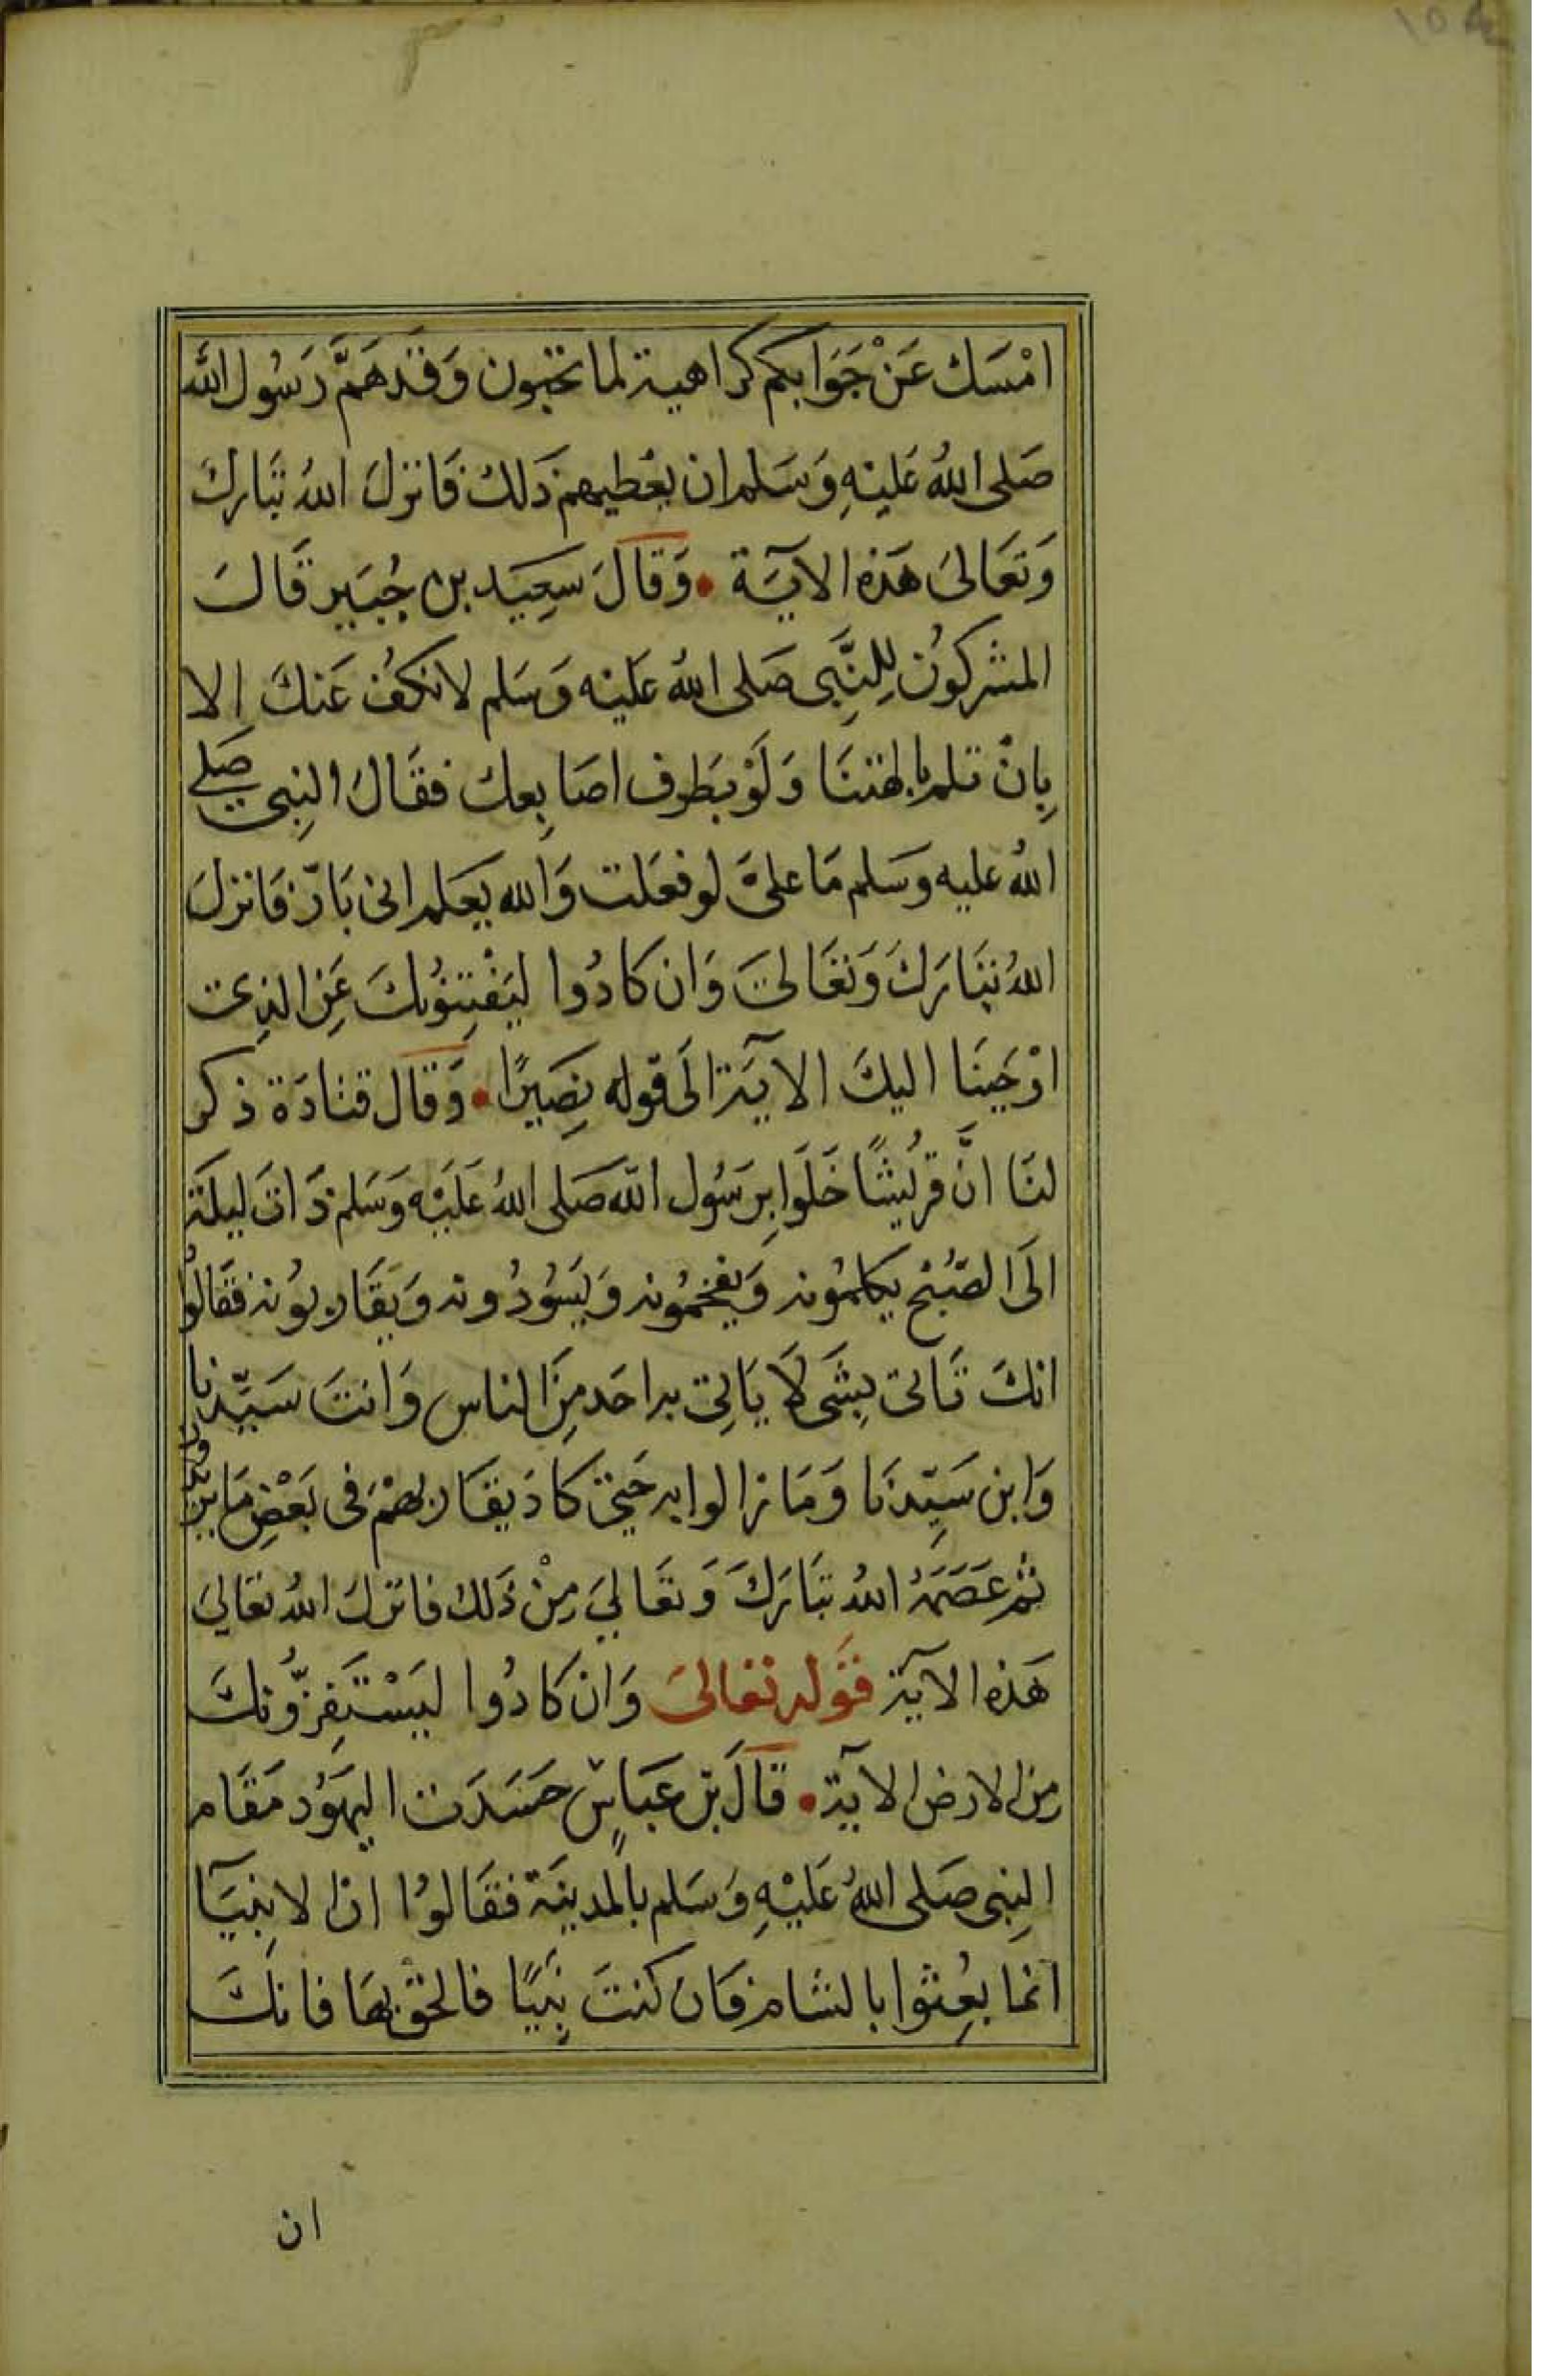 امْسَك عَنْ جَوَابكم كراهية لما تحبون وَقد هَمَّ رَسُول الله
صَلى اللهُ عَليْهِ وَسَلم ان يعْطيهم ذَلك فَانزلَ اللهُ تبَارك
وَتعَالىَ هَذه الآيَة • وَقالَ سَعِيَد بن جُبَير قَالَ
المشركوُن لِلنَّبِى صَلى اللهُ عَليْه وَسَلم لا نكفُ عَنكَ الا
بِانْ تلم بالهتنَا وَلَوْ بَطرف اصَابِعك فقَالَ النبِى صَلى
اللهُ عليه وسَلم مَا علىَّ لو فعَلت وَالله يعَلم انى بَارّ فَانزلَ
اللهُ تبَارَكَ وَتعَالىَ وَان كادُوا ليَفْتِنوُنكَ عَنِ الذِى
اوْحَينَا اليكَ الآيَة الَى قوله نصِيَرًا • وَقال قتادَة ذكر
لنَا انَّ قرُيشًا خَلَوا بِرَسُول الله صَلى اللهُ عَليْه وَسَلم ذَاتَ ليلَة
الَى الصّبُح يكلموُنه وَيفخموُنه وَيَسُودُونه وَيقَاربوُنه فقَالوُا
انكَ تَاتى بِشَى لَا يَاتِى به احَد مِنَ الناس وَانتَ سَيّدنا
وَابن سَيّدنَا وَمَا زالوا به حَتى كادَ يقَاربهمْ فى بَعْضِ مَا يريدون
ثم عَصَمَهُ اللهُ تبَارَكَ وَتعَالىَ مِنْ ذَلك فانزلَ اللهُ تعَالىَ
هَذه الآيَة قَوله تعَالىَ وَان كادُوا ليَسْتَفِزُّونكَ
مِنَ الارض الآية • قالَ بن عَبَاسٍ حَسَدَت اليهَوُد مَقَام
النبِى صَلى اللهُ عَليْهِ وَسَلم بالمدينَة فقَالوُا ان الانبيَآ
انما بعِثوا بالشام فان كنتَ نبِيًا فالحق بهَا فانكَ
ان